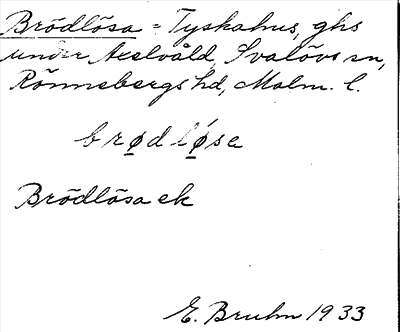 Brödlösa = Tyskahus, ghs
under Axelvåld, Svalövs sn,
Rönnebergs hd, Malm. l.
brødløsa
Brödlösa ek
E. Bruhn 1933